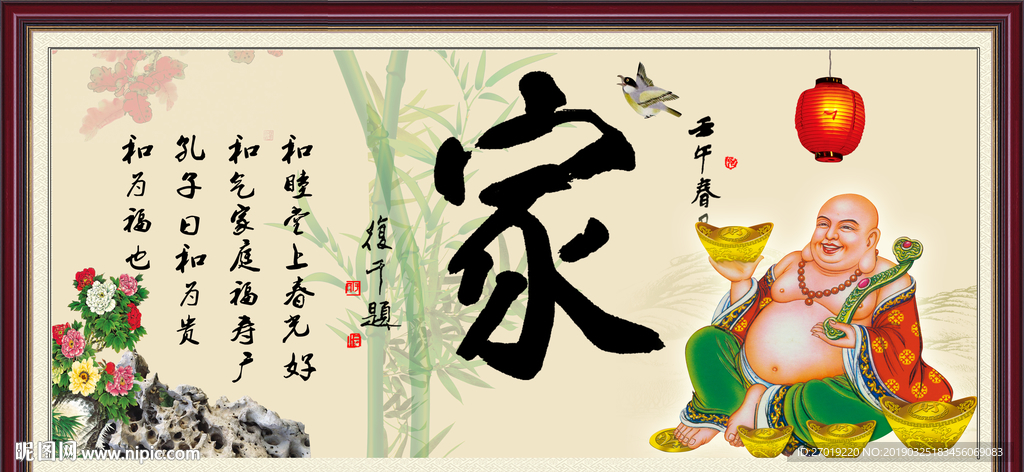 壬午春
家
復 題
和睦堂上春光好
和气家庭福寿广
孔子曰和为贵
和为福也
昵图网 www.nipic.com
ID:27019220 NO:20190325183456069083